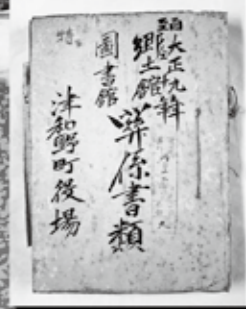 自大正九年
郷土館
圖書館
関係書類
津和野町役場